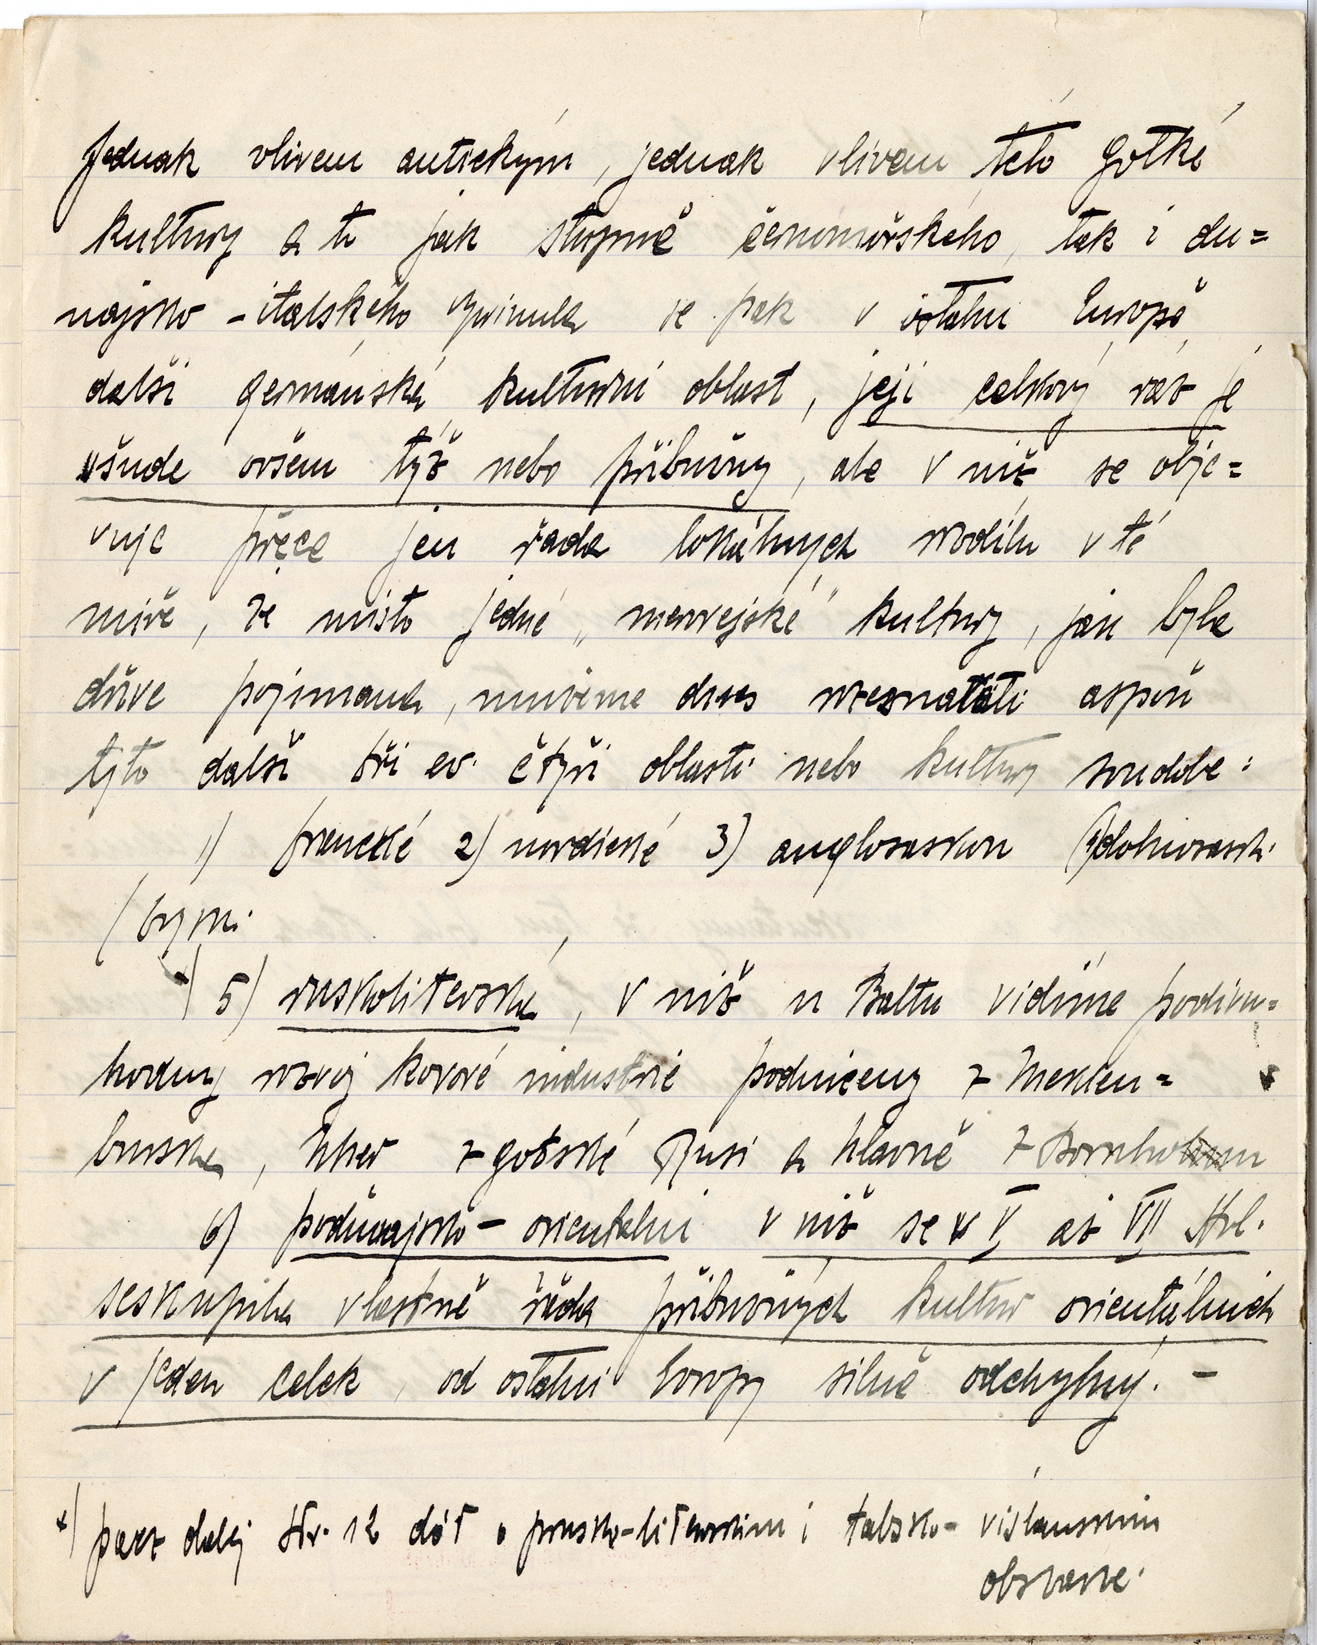 Jednak vlivem antickým, jednak vlivem této gotské
kultury a to jak stupně černomořského, tak i du=
najsko-italského vyvinula se pak v ostatní Evropě
další germánská kulturní oblast, její celkový ráz je
všude ovšem týž nebo příbuzný, ale v níž se obje=
vuje přece jen řada lokálných rozdílů v té
míře, že místo jedné „merovejské" kultury, jak byla
dříve pojímana, musíme dnes rozeznatati aspoň
tyto další tři ev. čtyři oblasti nebo kultury soudobé:
1) franckú 2) nordické 3) anglosaskou (dolnosaskí
4)
*) 5) ruskolitevská, v níž u Baltu vidíme podivu=
hodný rozvoj kovové industrie podnícený z Meklen=
burska, Uher z gotské Rusi a hlavně z Bornholmu
6) podunajsko-orientální v níž se v V až VII stol.
seskupila vlastně řada příbuzných kultur orientálních
v jeden celek, od ostatní Evropy silně odchylný. –
*) patz dalej str. 12 dół o prusko-litewskim i
obszarze.